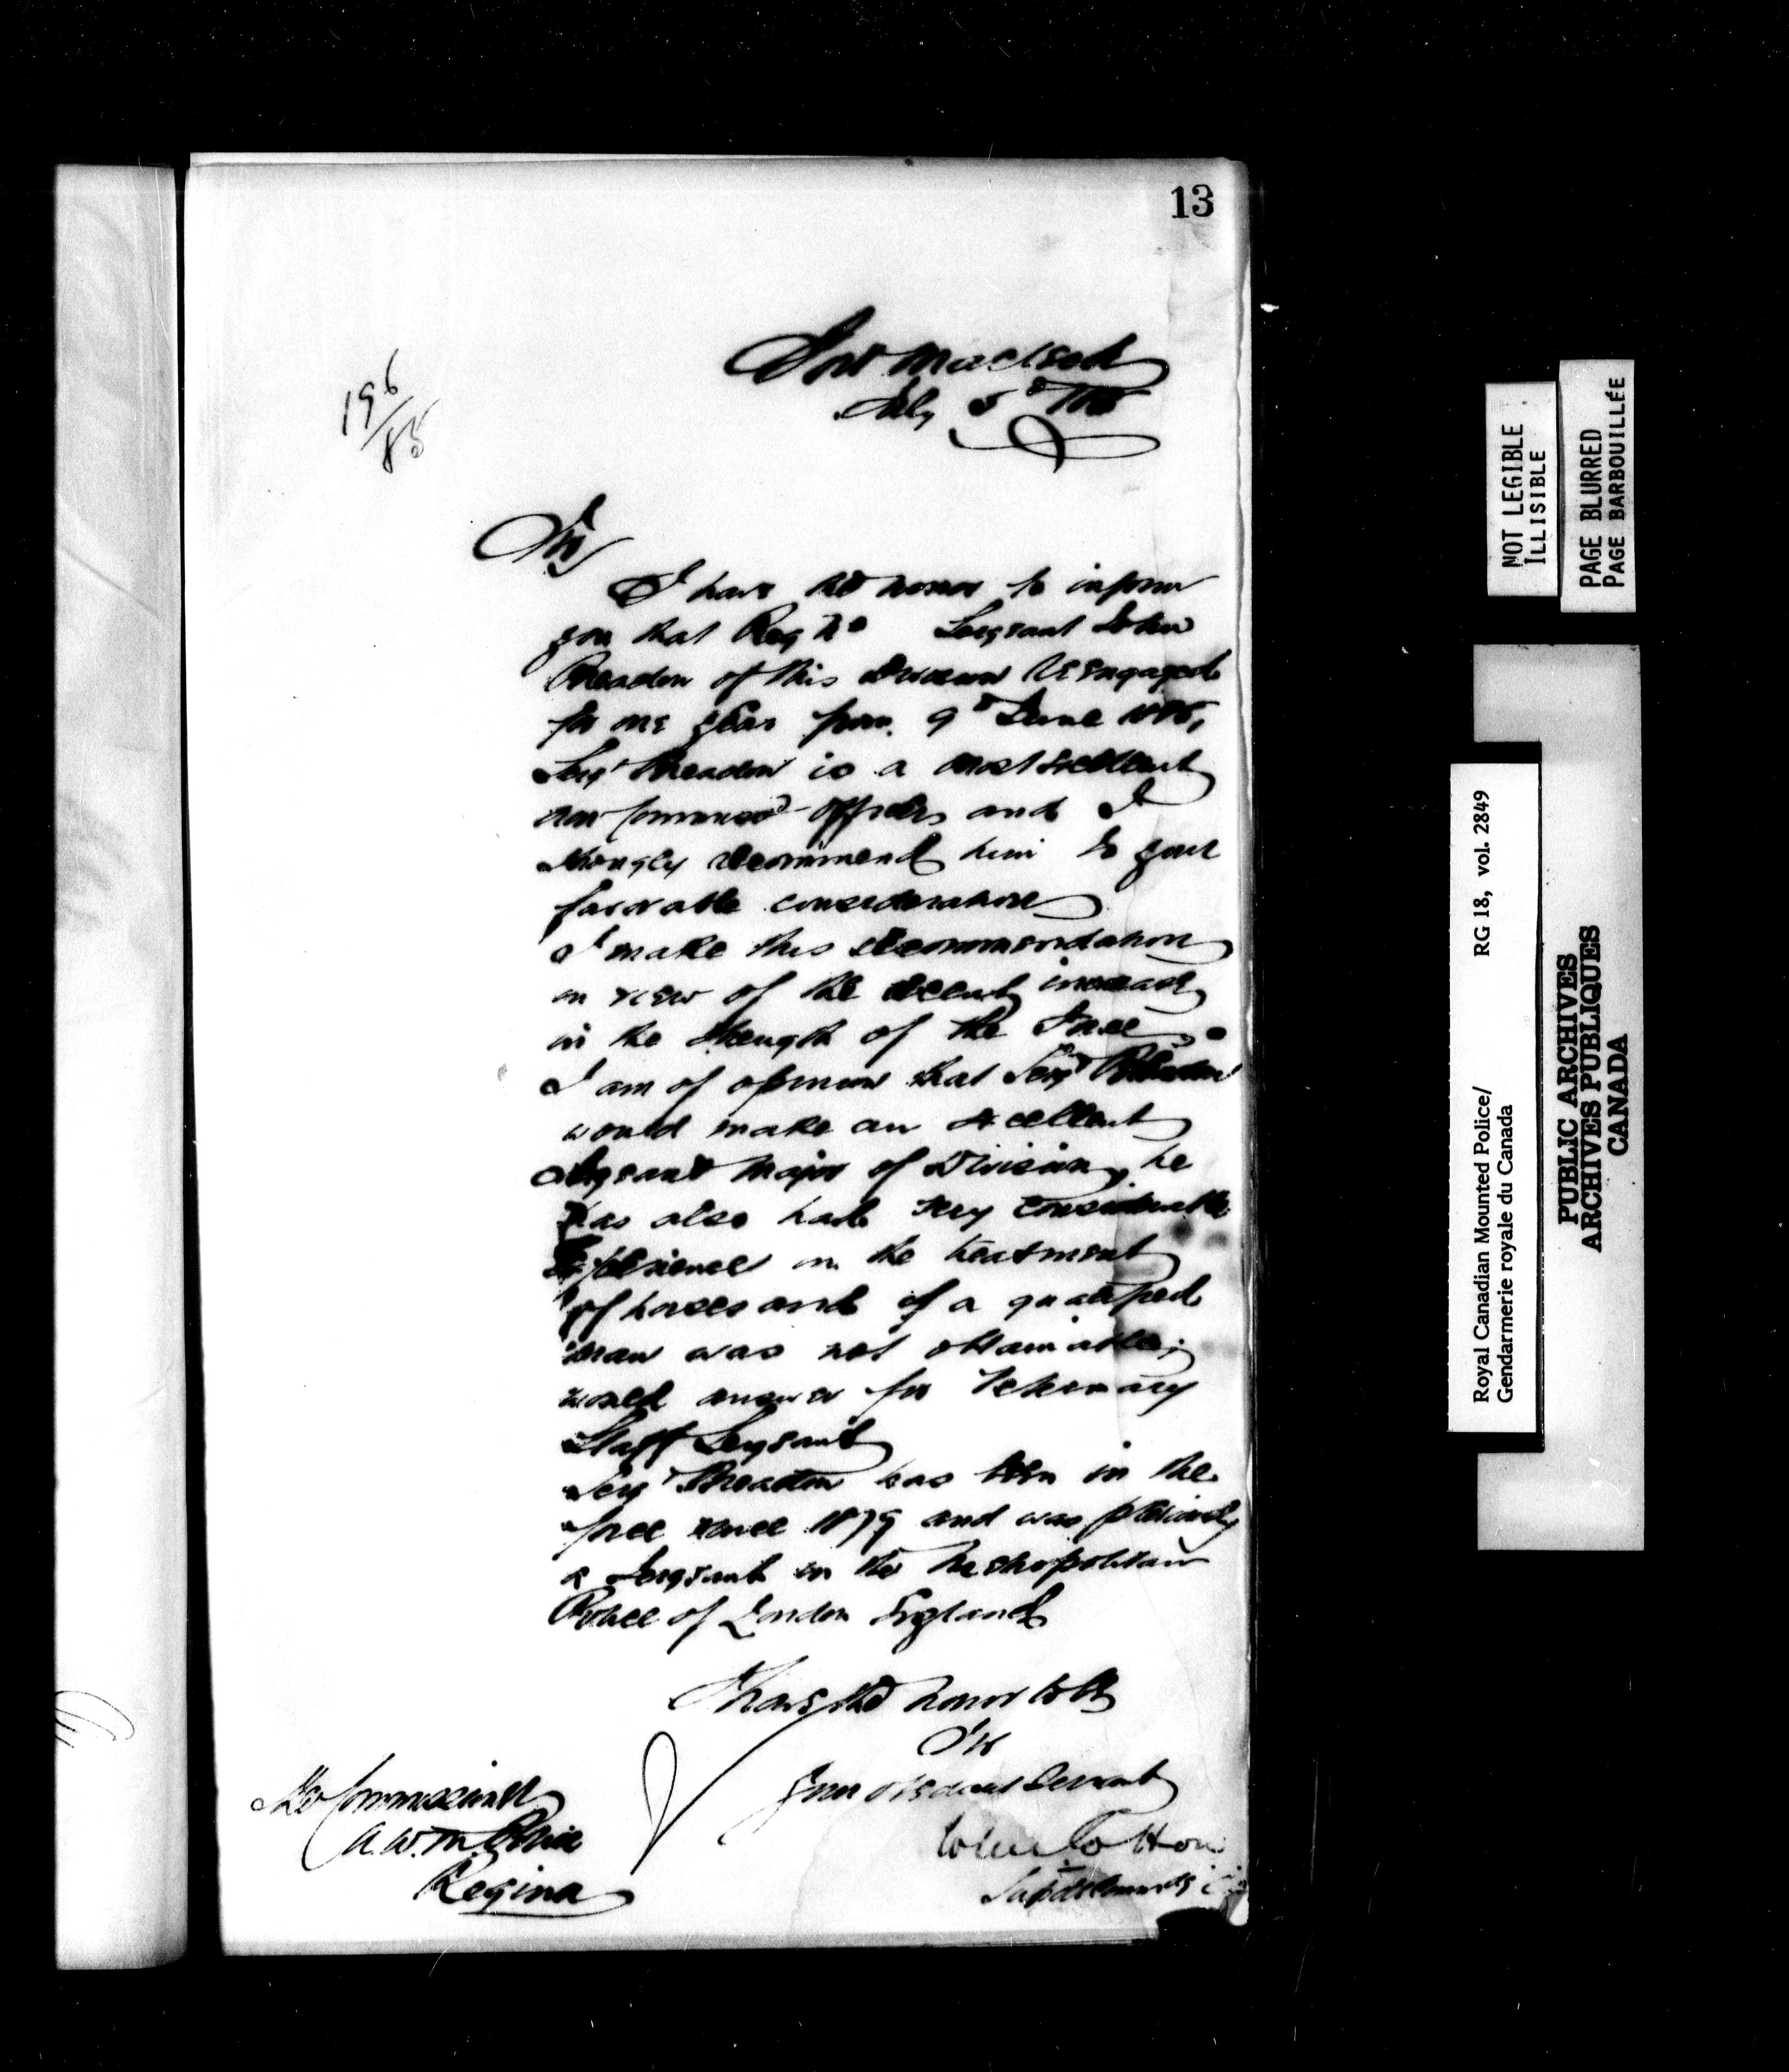 13
Fort Macleod
July 5th 1885
196/85
Sir
I have the honor to inform
you that Reg No Sergeant John
of this Division reengaged
for one year from 9th June 1885,
Sergt is a most excellent
non Commissd Officer and I
strongly recommend him to your
favorable consideration
I make this recommendation
in view of the recent increase
in the strength of the Force.
I am of opinion that Sergt
would make an excellent
Sergeant Major of Division, he
has also had very considerable
experience in the treatment
of horses and if a qualified
man was not obtainable,
would answer for Veterinary
Staff Sergeant
Sergt has been in the
force since 1879 and was previously
a Sergeant in the Metropolitan
Police of London England
I have the honor to be
Sir
Your obedient Servant
John Cotton
Supdt Commdg
The Commissioner
N.W.M. Police
Regina
NOT LEGIBLE
ILLISIBLE
PAGE BLURRED
PAGE BARBOUILLÉE
Royal Canadian Mounted Police/ RG 18, vol. 2849
Gendarmerie royale du Canada
PUBLIC ARCHIVES
ARCHIVES PUBLIQUES
CANADA